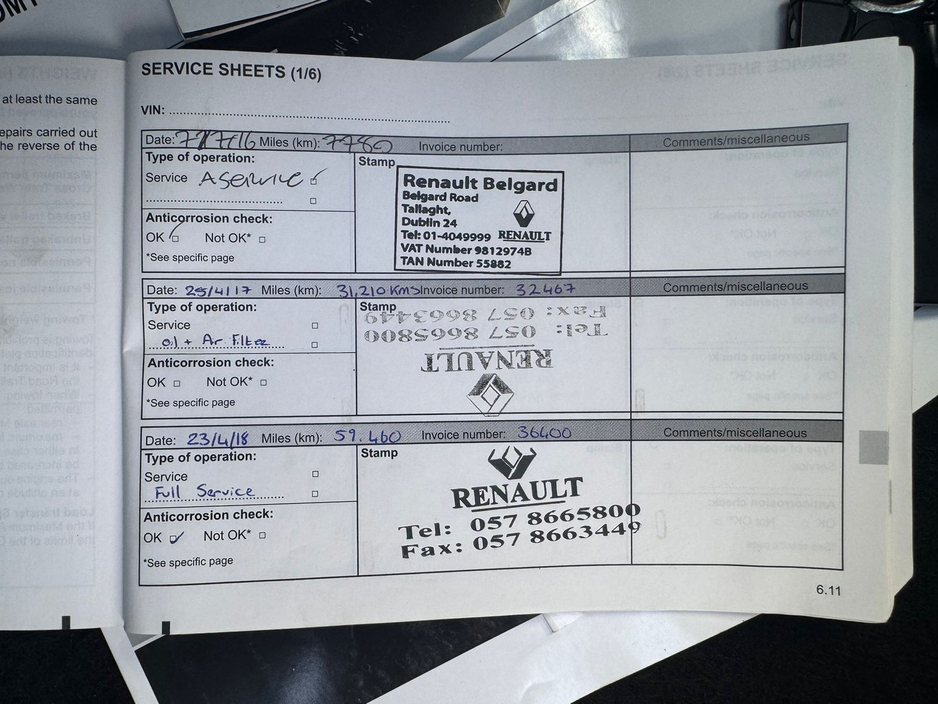 at least the same
epairs carried out
he reverse of the
SERVICE SHEETS (1/6)
VIN:
Date: 7/7/16 Miles (km): 7780 Invoice number:
Comments/miscellaneous
Type of operation:
Service A Service
Anticorrosion check:
OK Not OK*
*See specific page
Stamp
Renault Belgard
Belgard Road
Tallaght,
Dublin 24
Tel: 01-4049999 RENAULT
VAT Number 9812974B
TAN Number 55882
Date: 25/4/17 Miles (km): 31,210 Kms Invoice number: 32467
Comments/miscellaneous
Type of operation:
Service
oil + Air Filter
Anticorrosion check:
OK Not OK*
*See specific page
Stamp
RENAULT
Tel: 057 8665800
Fax: 057 8663449
Date: 23/4/18 Miles (km): 59.460 Invoice number: 36400
Comments/miscellaneous
Type of operation:
Service
Full Service
Anticorrosion check:
OK Not OK*
*See specific page
Stamp
RENAULT
Tel: 057 8665800
Fax: 057 8663449
6.11